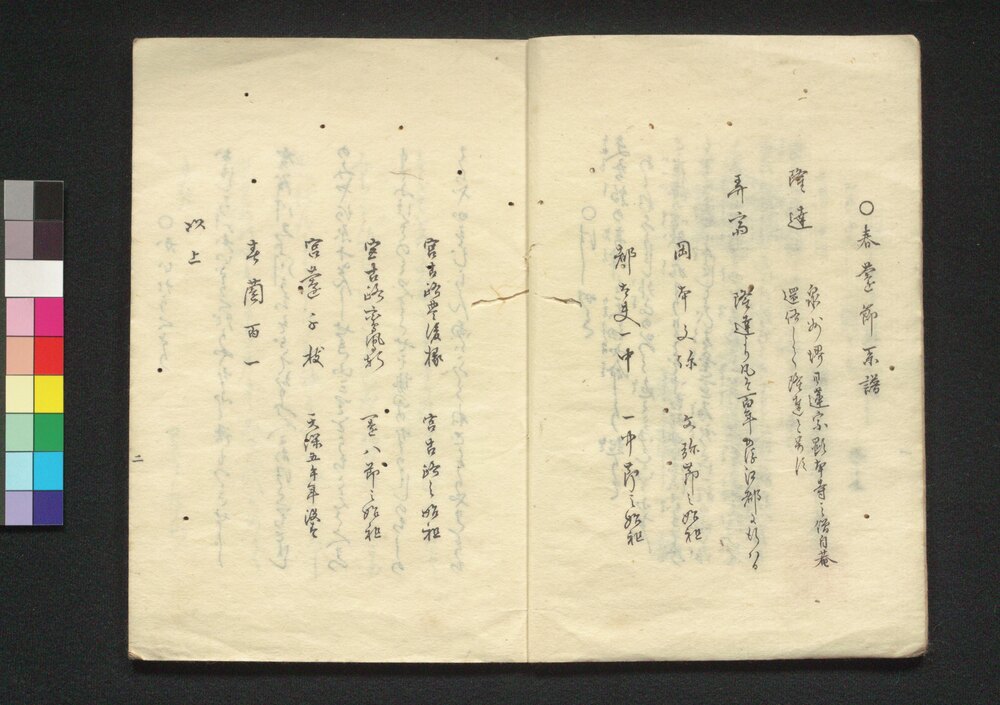 ○春薗節系譜
隆達
泉州堺日蓮宗顕本寺之僧自菴
還俗して隆達と号す
弄斎
隆達より凡そ百年の後江都に行はる
岡本文弥 文弥節之始祖
都太夫一中 一中節之始祖
宮古路豊後掾 宮古路之始祖
宮古路 薗八節之始祖
宮薗千枝 天保五午年
春薗百一
以上
二